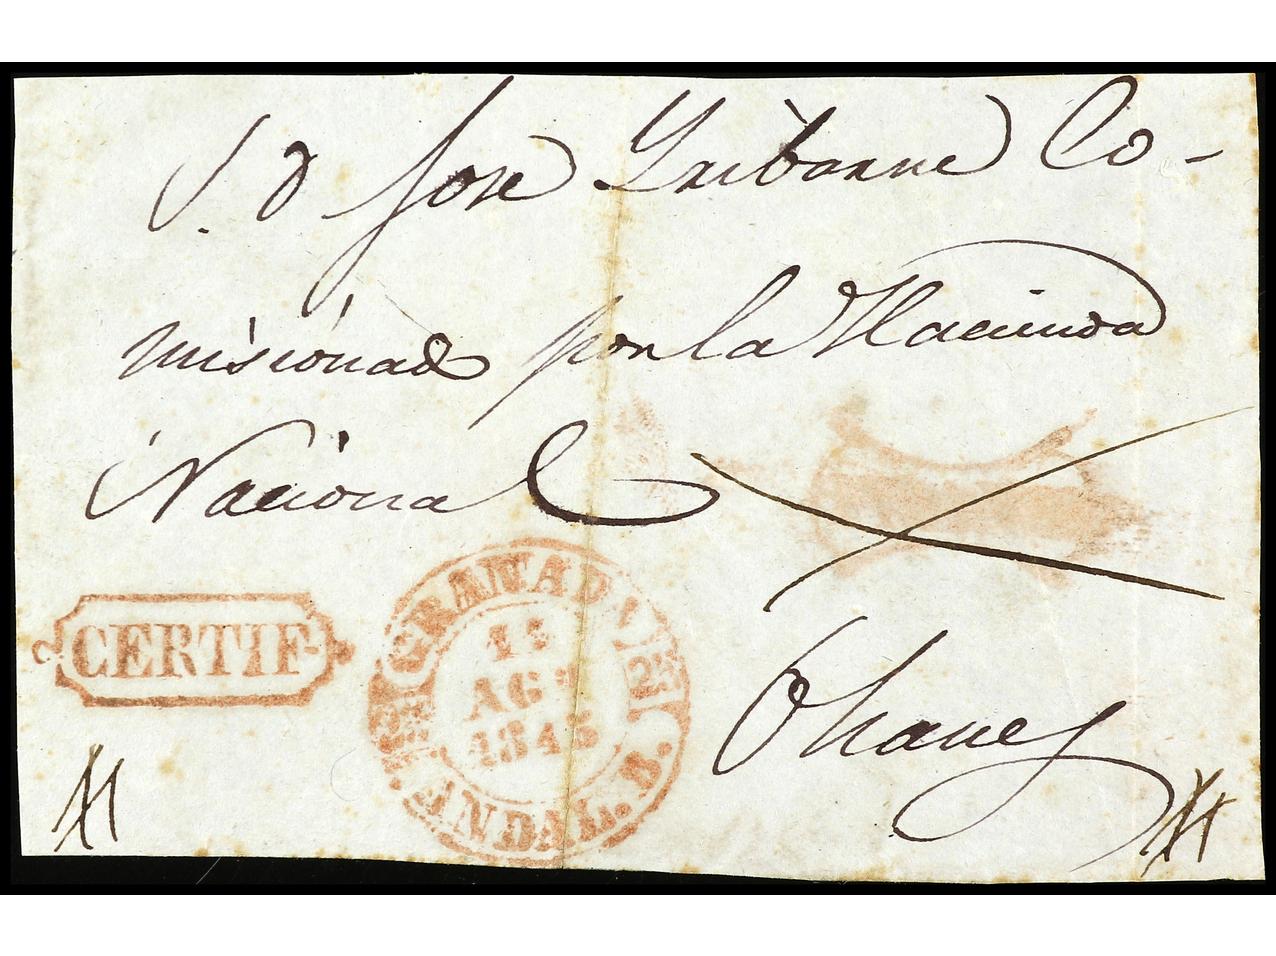 S. D José Iribarne Co-
misionado por la Hacienda
Nacional
CERTIF
GRANADA
AGº
1845
ANDAL. B.
Ohanes